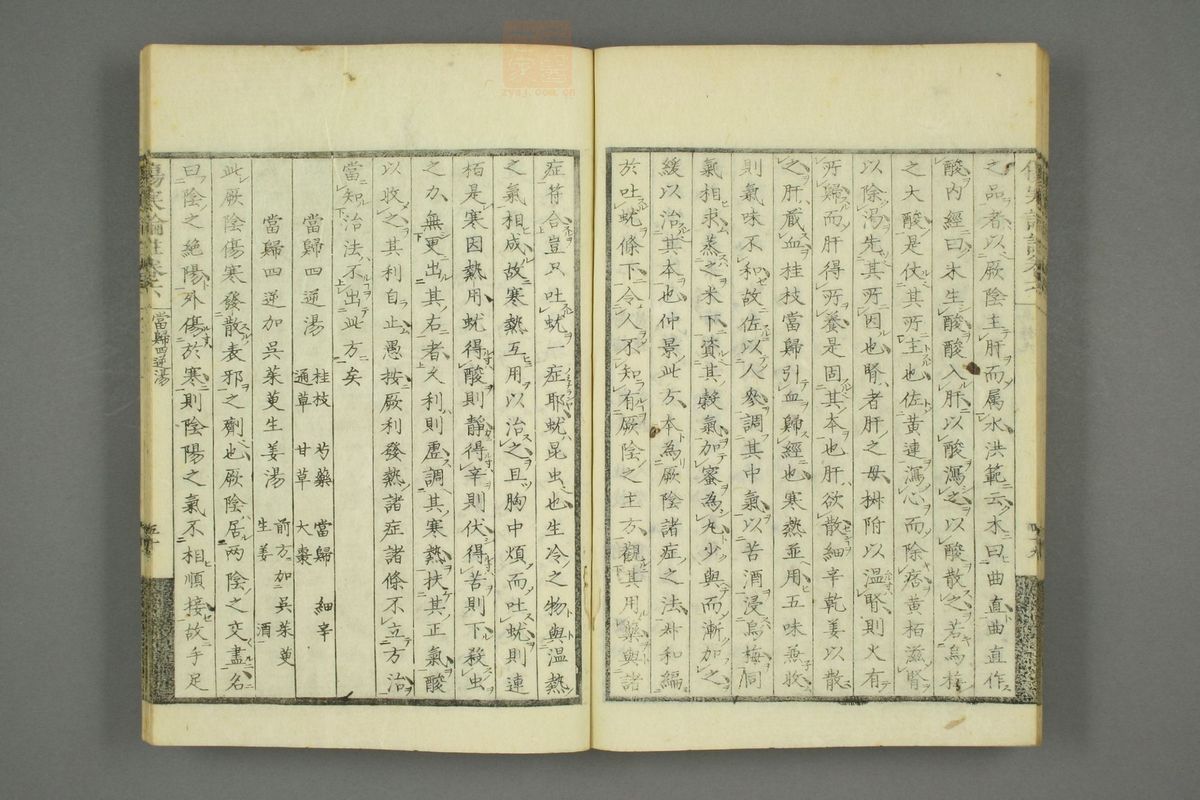 之品者以厥陰主肝而属水洪範云木曰曲直曲直作
酸内經曰木生酸酸入肝以酸瀉之以酸散之若烏梅
之大酸是伏其所主也佐黄連瀉心而除痞黄栢滋腎
以除渴先其所因也腎者肝之母椒附以温腎則火有
所歸而肝得所養是固其本也肝欲散細辛乾姜以散
之肝蔵血桂枝當歸引血歸經也寒熱並用五味兼收
則氣味不和故佐以人參調其中氣以苦酒浸烏梅同
氣相求蒸之米下資其穀氣加蜜為丸少與而漸加之
緩以治其本也仲景此方本為厥陰諸症之法叔和編
於吐蚘條下令人不知有厥陰之主方觀其用藥與諸
症符合豈只吐蚘一症耶蚘昆虫也生冷之物與温熱
之氣相成故寒熱互用以治之且胸中煩而吐蚘則連
栢是寒因熱用蚘得酸則静得辛則伏得苦則下殺虫
之力無更出其右者久利則虚調其寒熱扶其正氣酸
以收之其利自止愚按厥利發熱諸症諸條不立方治
當知治法不出此方矣
當歸四逆湯 桂枝 芍藥 當歸 細辛
通草 甘草 大棗
當歸四逆加呉茱萸生姜湯 前方加呉茱萸
生姜 酒
此厥陰傷寒發散表邪之劑也厥陰居兩陰之交盡名
曰陰之絶陽外傷於寒則陰陽之氣不相順接故手足
傷寒論註巻六
當歸四逆湯
五十